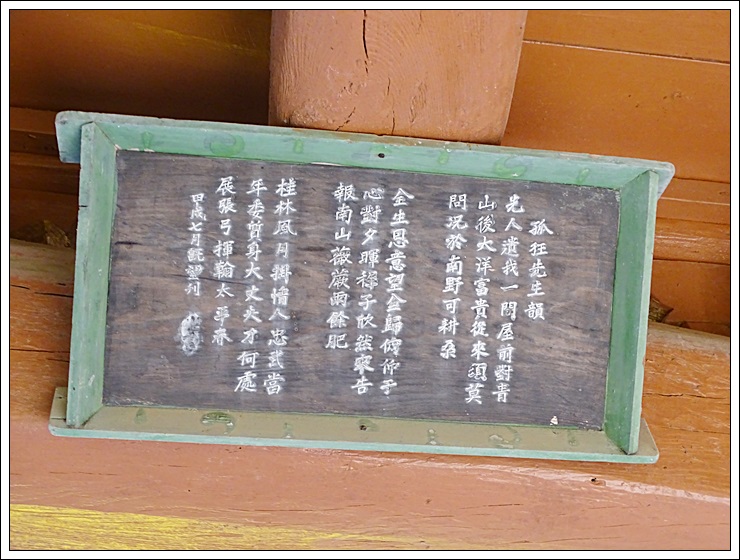 孤狂先生韻
先人遺我一間屋前對青
山後大洋富貴從來須莫
問況於南野可耕桑
全生恩意望全歸俯仰于
心對夕暉穉子欣然來告
報南山薇蕨雨餘肥
桂林風月掛情人忠武當
年委質身大丈夫才何處
展張弓揮翰太平春
甲戌七月旣望刊